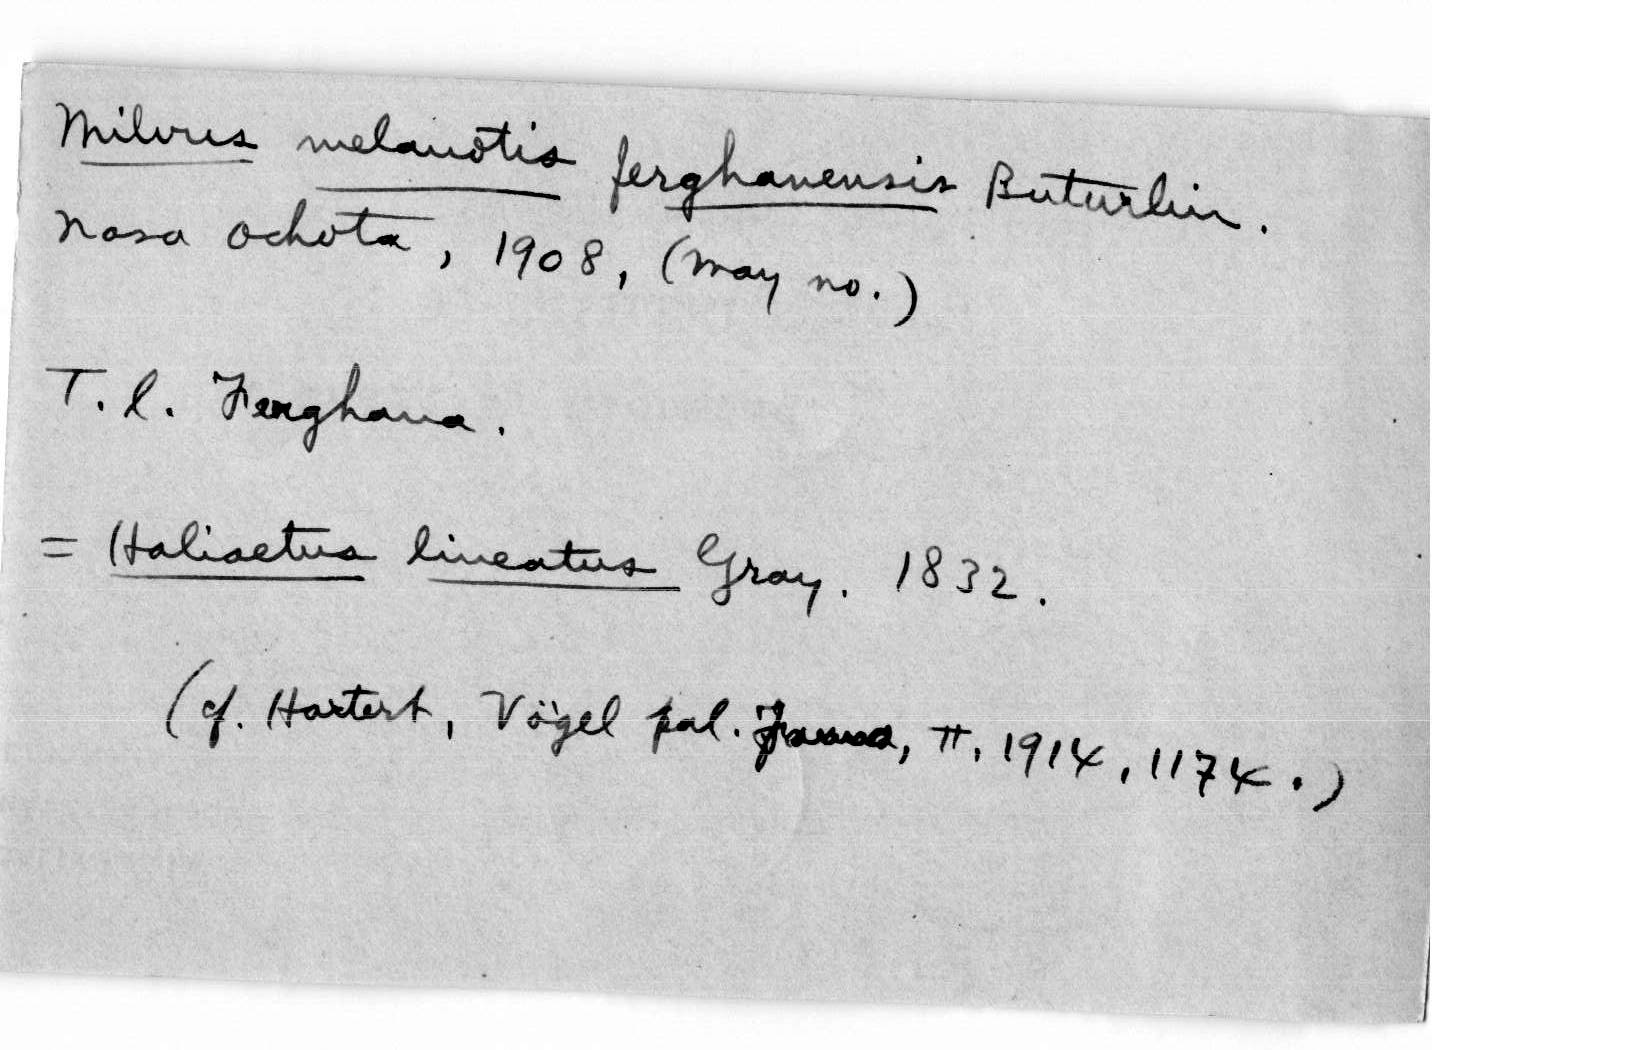 Milvus melanotis ferghanensis Buturlin.
Nasa Ochota, 1908, (May no.)
T. l. Ferghana.
= Haliaetus lineatus Gray. 1832.
(cf. Hartert, Vögel pal. Fauna, II, 1914, 1174.)